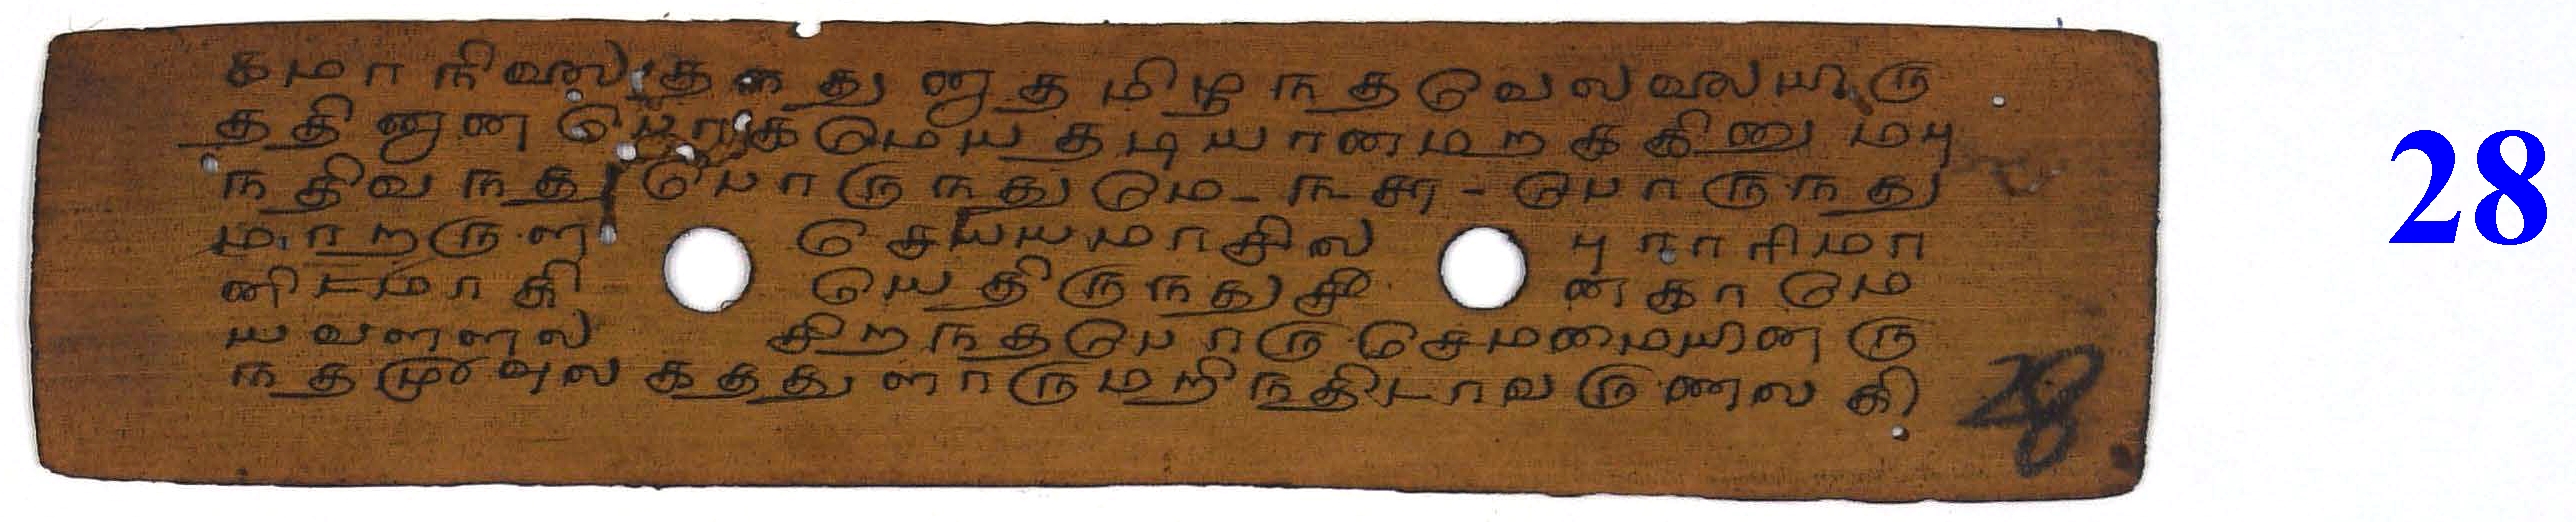 கமானிலை தனது னுதமிழநதவேலலையிரு
ததினுன மெயதடியானமறககினுமபு
நதிவநது பொருநதுமே - ௩௪ - பொருநது
மாறருள செயயமாசில புராரிமா
னிடமாகி யெதிருநதுசீ னகாமே
யவளளல சிறநதபொருசெமமையினரு
நதமூவுலகதது ளாருமறிநதிடாவருணலகி
28
28